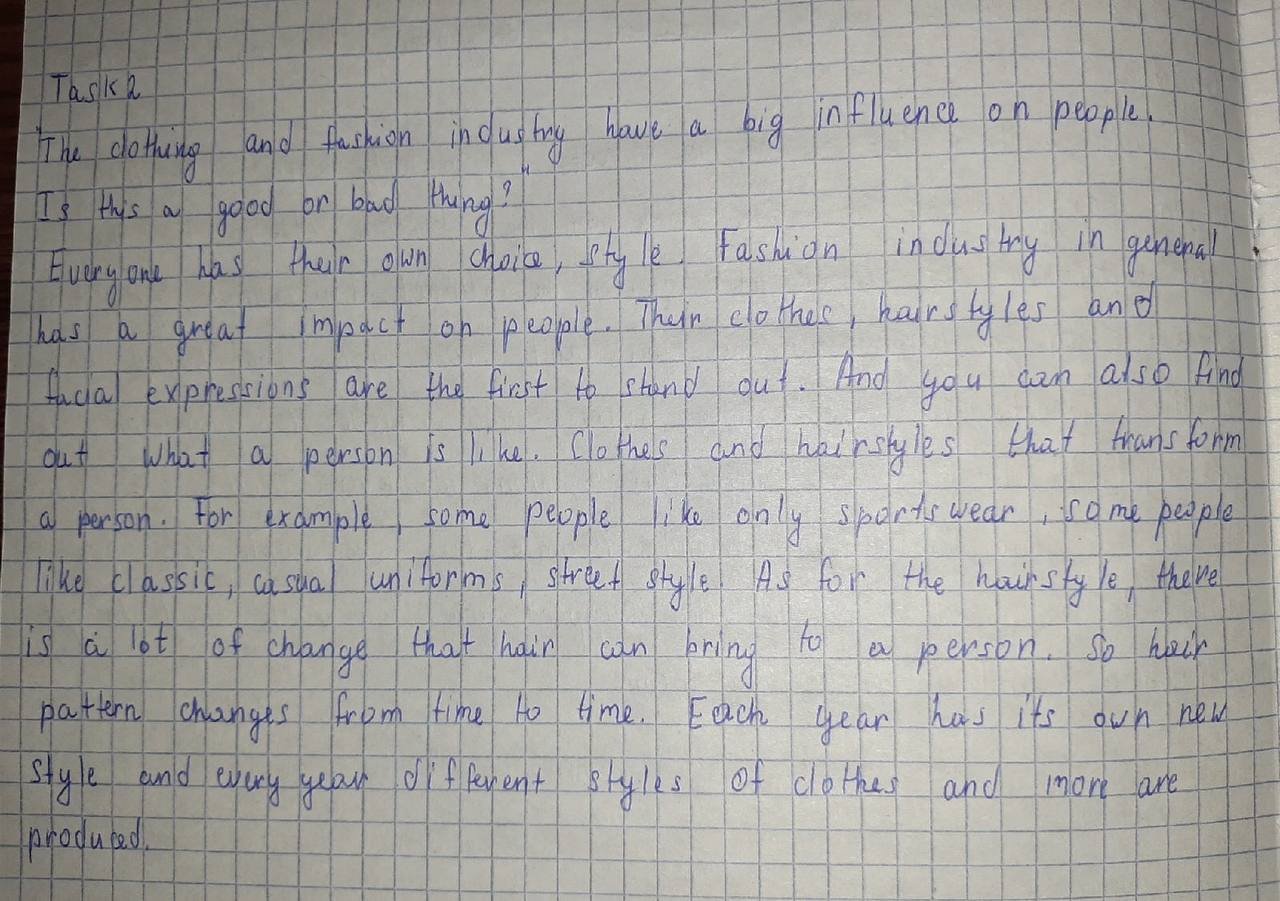 Task 2
"The clothing and fashion industry have a big influence on people.
Is this a good or bad thing?"
Everyone has their own choice, style. Fashion industry in general
has a great impact on people. Their clothes, hairstyles and
facial expressions are the first to stand out. And you can also find
out what a person is like. Clothes and hairstyles that transform
a person. For example, some people like only sportswear, some people
like classic, casual uniforms, street style. As for the hairstyle, there
is a lot of change that hair can bring to a person. So hair
pattern changes from time to time. Each year has its own new
style and every year different styles of clothes and more are
produced.